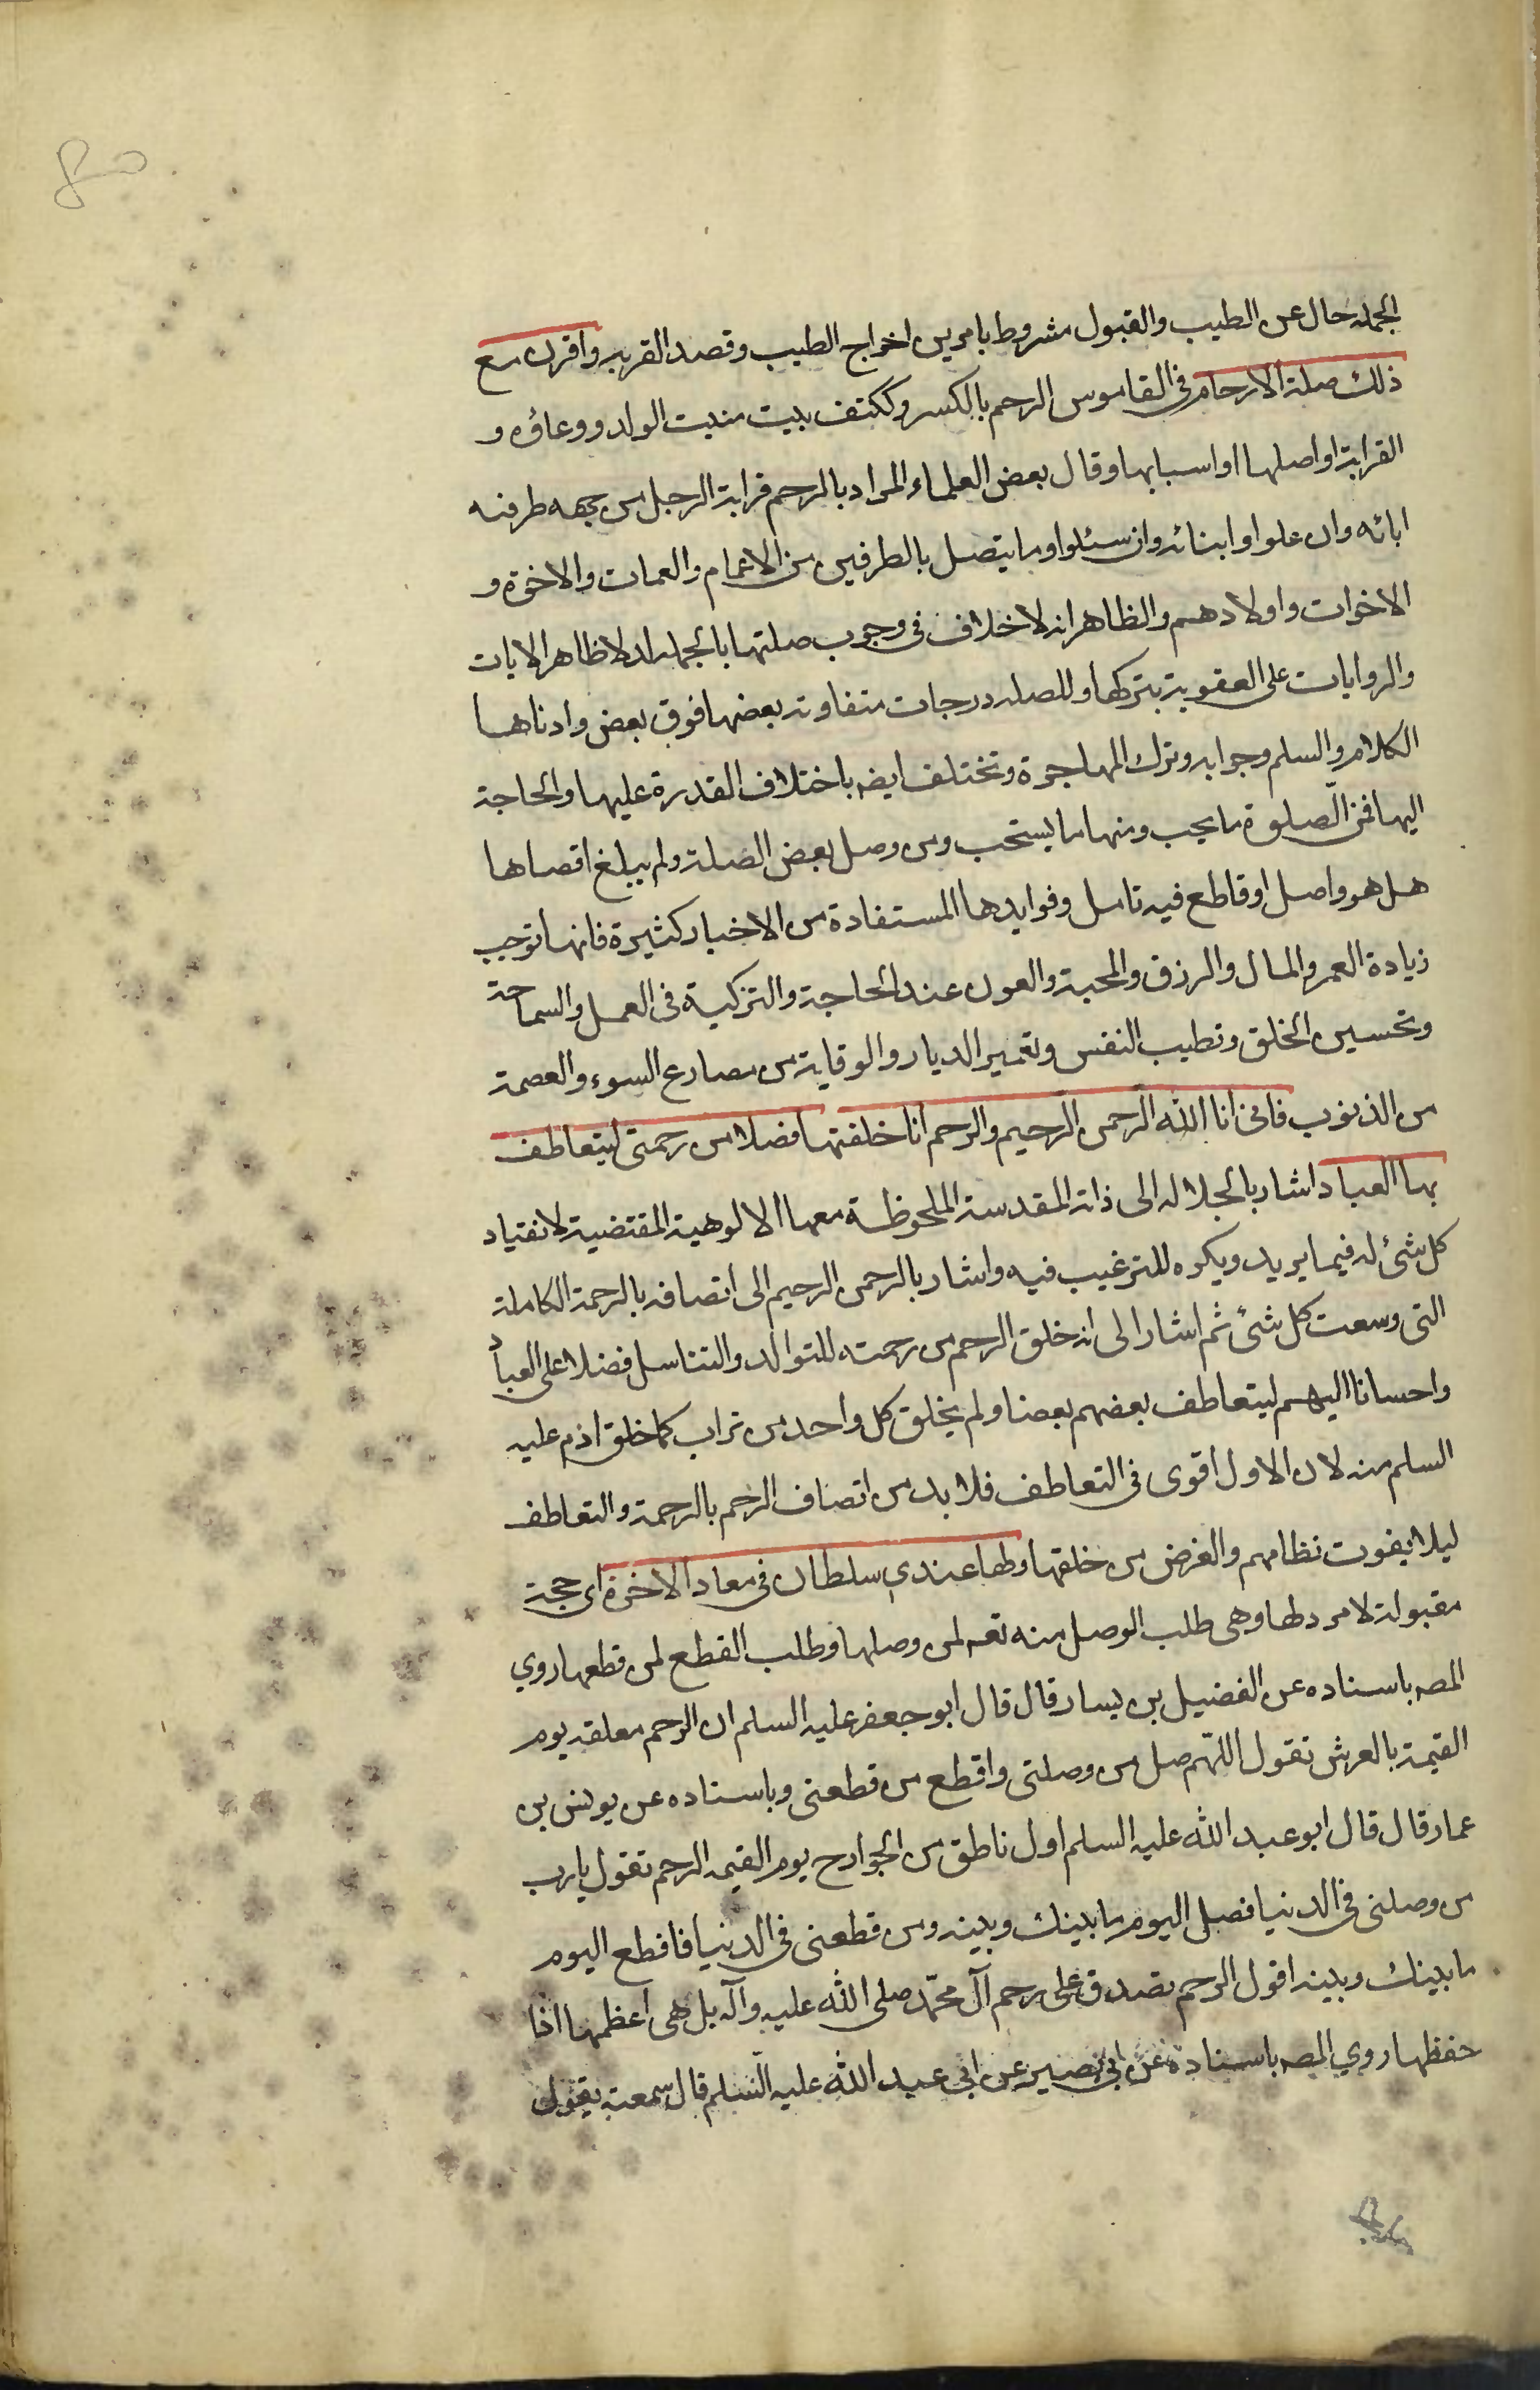 الجمله حال عن الطيب والقبول مشروط بامرين اخراج الطيب وقصد القربه واقرن مع
ذلك صلة الارحام في القاموس الرحم بالكسر وككتف بيت منبت الولد ووعاؤه و
القرابة او اصلها او اسبابها وقال بعض العلماء المراد بالرحم قرابة الرجل من جهه طرفيه
ابائه وان علوا وابنائه وان سئلوا وما يتصل بالطرفين من الاعمام والعمات والاخوة و
الاخوات واولادهم والظاهر انه لا خلاف في وجوب صلتها بالجمله لدلا ظاهر الايات
والروايات على العقوبة بتركها وللصله درجات متفاوته بعضها فوق بعض وادناها
الكلام والسلم وجوابه وترك المهاجرة وتختلف ايضه باختلاف القدرة عليها والحاجة
اليها فمن الصلوة ما يجب ومنها ما يستحب ومن وصل بعض الصلة ولم يبلغ اقصاها
هل هو واصل او قاطع فيه تامل وفوايدها المستفادة من الاخبار كثيرة فانها توجب
زيادة العمر والمال والرزق والمحبة والعون عند الحاجة والتزكية في العمل والسماحة
وتحسين الخلق وتطيب النفس وتعمير الديار والوقاية من مصارع السوء والعصمة
من الذنوب فاني انا الله الرحمن الرحيم والرحم انا خلقتها فضلا من رحمتي ليتعاطف
بها العباد اشار بالجلاله الى ذاته المقدسة الملحوظة معها الالوهية المقتضية لانقياد
كل شئ له فيما يريد ويكره للترغيب فيه واشار بالرحمن الرحيم الى اتصافه بالرحمة الكاملة
التى وسعت كل شئ ثم اشار الى انه خلق الرحم من رحمته للتوالد والتناسل فضلا على العباد
واحسانا اليهم ليتعاطف بعضهم بعضا ولم يخلق كل واحد من تراب كما خلق ادم عليه
السلم منه لان الاول اقوى في التعاطف فلا بد من اتصاف الرحم بالرحمة والتعاطف
ليلا يفوت نظامهم والغرض من خلقها ولها عندي سلطان في معاد الاخرة اى حجة
مقبولة لا مرد لها وهى طلب الوصل منه تعه لمن وصلها وطلب القطع لمن قطعها روي
المصه باسناده عن الفضيل بن يسار قال قال ابو جعفر عليه السلم ان الرحم معلقه يوم
القيمة بالعرش تقول اللهم صل من وصلنى واقطع من قطعنى وباسناده عن يونس بن
عمار قال قال ابو عبد الله عليه السلم اول ناطق من الجوارح يوم القيمه الرحم تقول يا رب
من وصلنى في الدنيا فصل اليوم ما بينك وبينه ومن قطعنى في الدنيا فاقطع اليوم
ما بينك وبينه اقول الرحم تصدق على رحم آل محمد صلى الله عليه وآله بل هى اعظمها اذا
حفظها روي المصه باسناده عن ابى بصير عن ابى عبد الله عليه السلم قال سمعته يقول